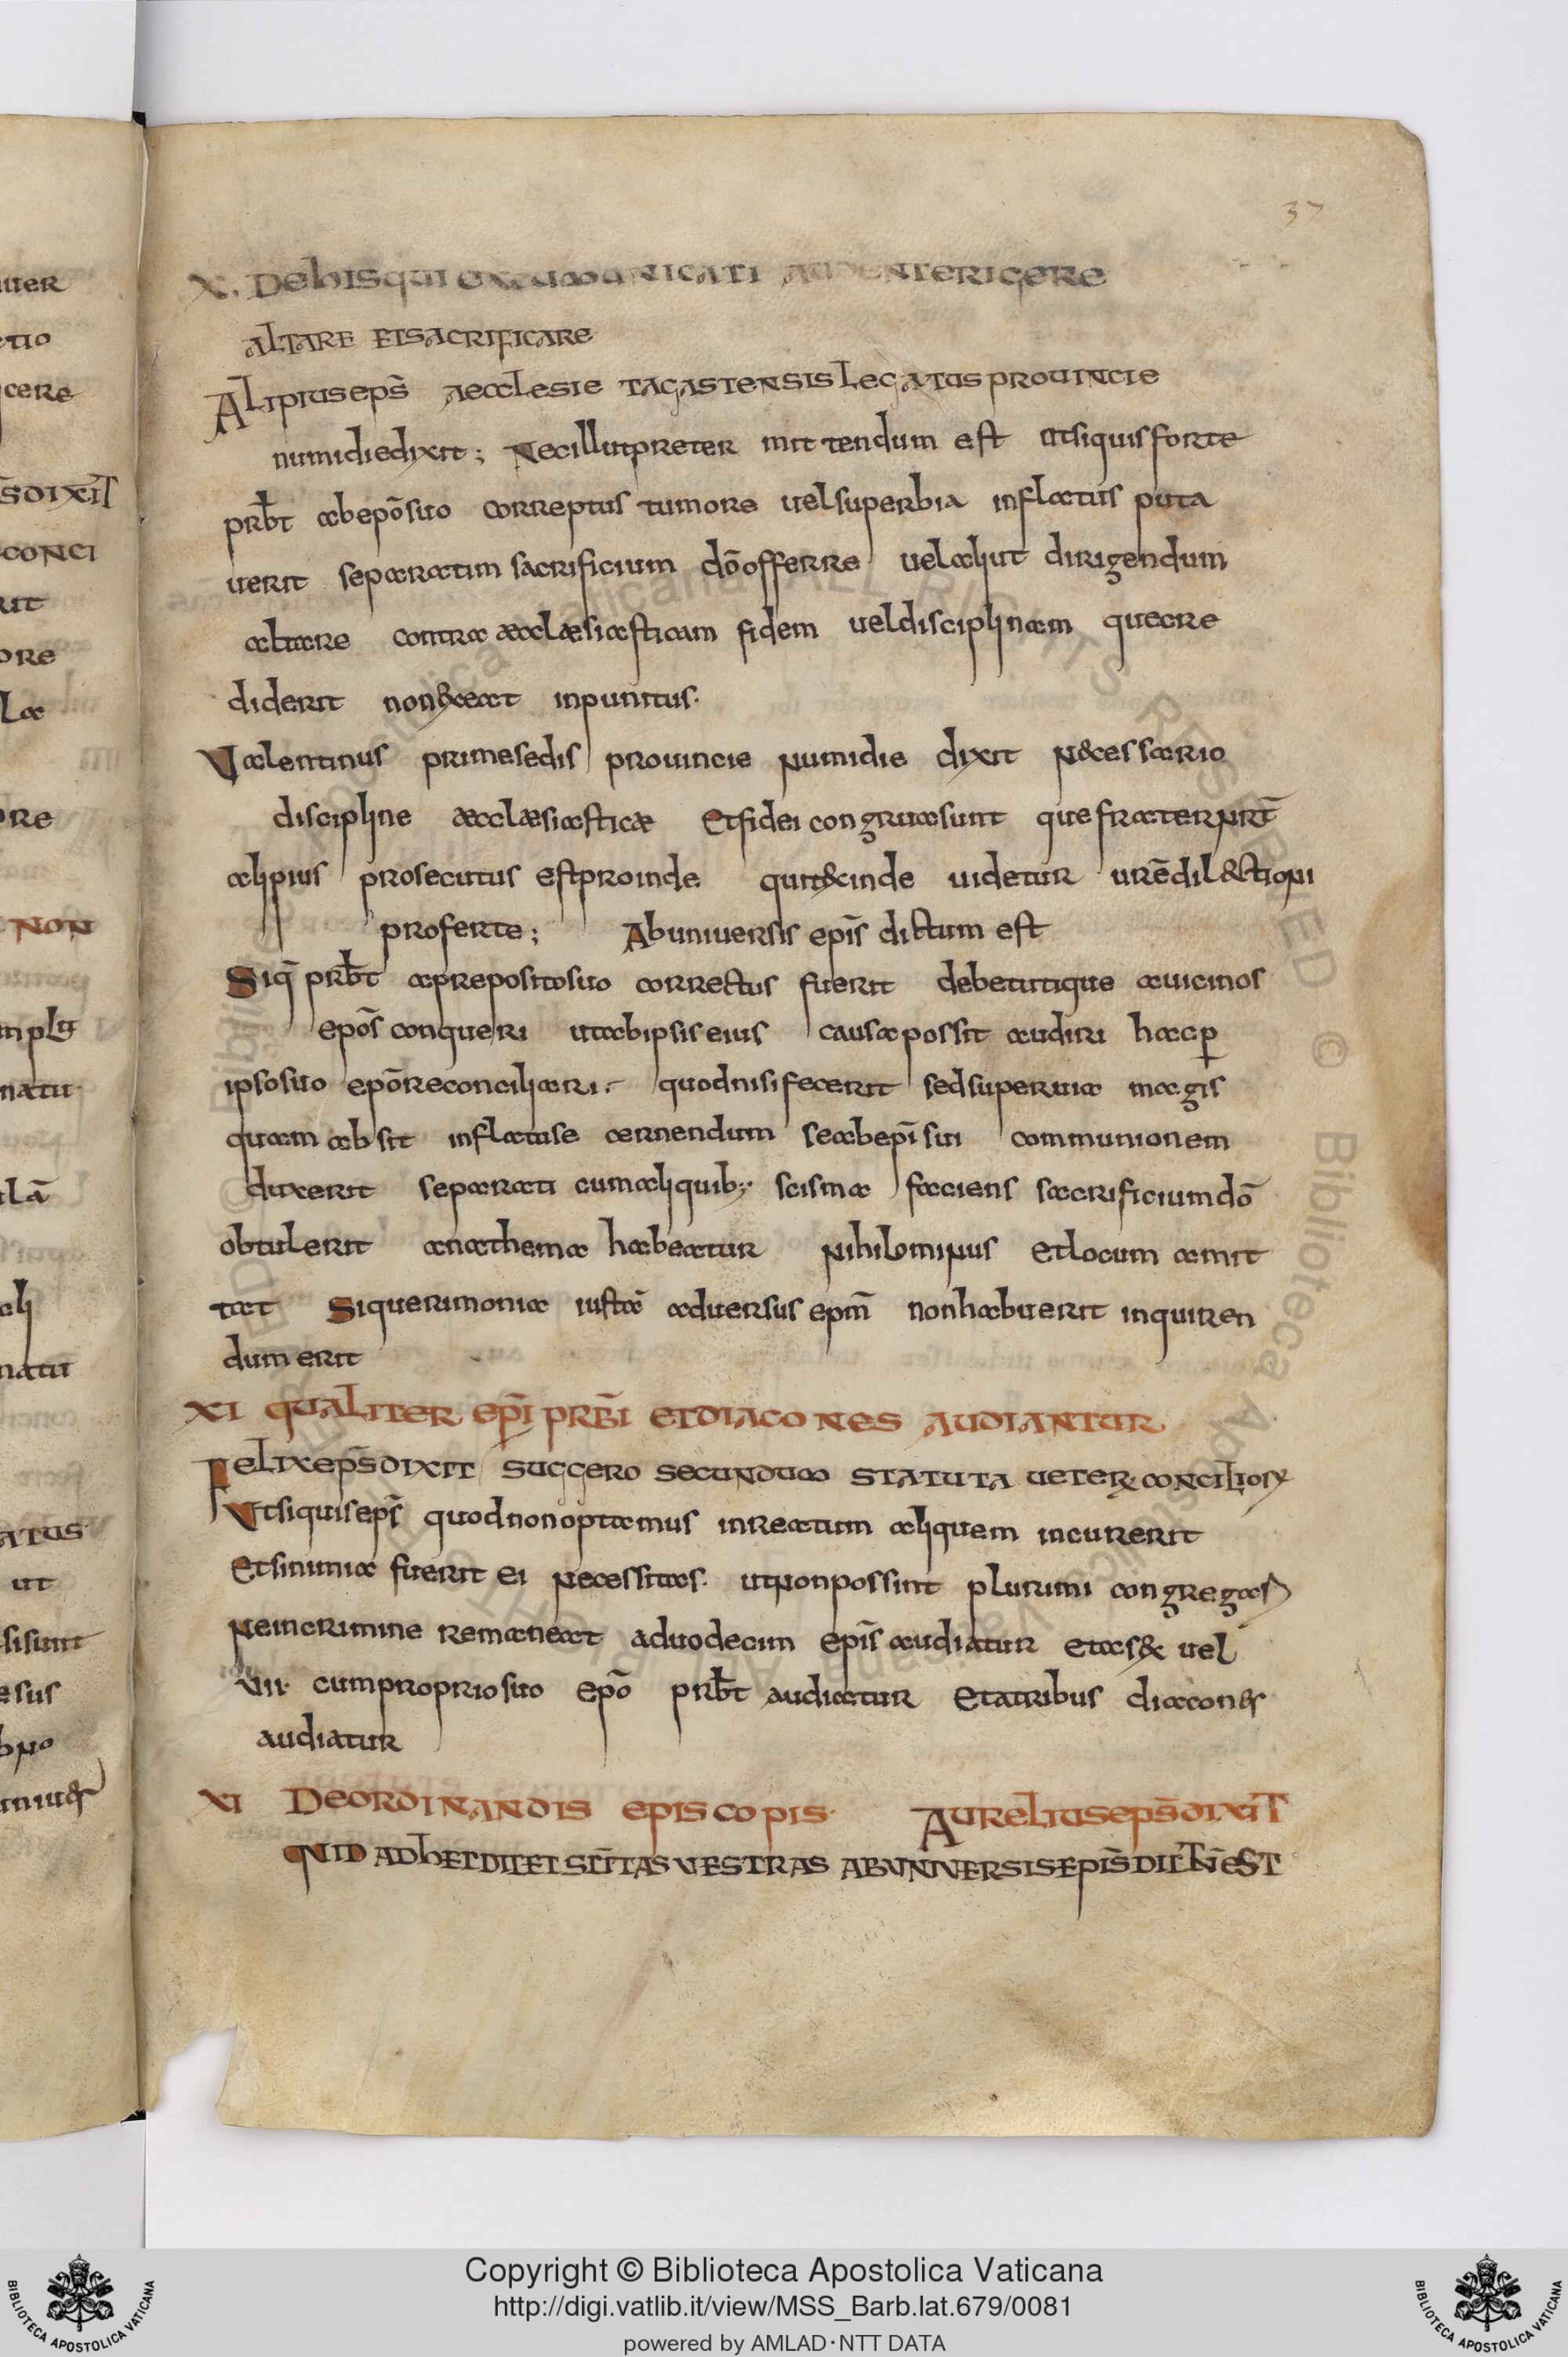 37
X. Dehisqui excumunicati audenterigere
altare etsacrificare
Alipiusep̄s aecclesie tagastensis legatus prouincie
numidiedixit; Necillutpreter mittendum est utsiquisforte
prb̄t abep̄osuo correptus tumore uelsuperbia inflatus puta
uerit separatim sacrificium dōofferre uelaliut dirigendum
altare contra aecclæsiasticam fidem ueldisciplinam quecre
diderit non&xeat inpunitus.
Valentinus primesedis prouincie numidie dixit n&cessario
discipline æcclæsiasticæ Etfidei congruasunt quefraternr̄t
alipius prosecutus estproinde quit&inde uidetur urēdil&ctioni
proferte; Abuniuersis ep̄is dictum est
Siq̄ prb̄t aprepositosuo correctus fuerit debetutique auicinos
ep̄os conqueri utabipsis eius causapossit audiri hacꝑ
ipsosuo ep̄oreconciliari. quodnisifecerit sedsuperuia magis
quam absit inflatuse cernendum seabep̄i sui communionem
duxerit separati cumaliquib; scisma faciens sacrificiumdō
obtulerit anathema habeatur nihilominus etlocum amit
tat Siquerimonia iustā aduersus ep̄m nonhabuerit inquiren
dum erit
XI qualiter ep̄i prb̄i etdiacones audiantur
Felixep̄sdixit suggero secundum statuta ueterꝝ conciliorꝝ
Vtsiquisep̄s quodnonoptamus inreatum aliquem incurerit
Etsinimia fuerit ei necessitas. utnonpossint plurimi congregari
neincrimine remaneat aduodecim ep̄is audiatur etas& uel
VII. cumpropriosuo ep̄o prb̄t audiatur Etatribus diacon&s
audiatur
XI Deordinandis episcopis. Aureliusep̄sdixit
quid adhetditet sc̄itas vestras abvniversisep̄isdictūest
Copyright © Biblioteca Apostolica Vaticana
http://digi.vatlib.it/view/MSS_Barb.lat.679/0081
powered by AMLAD·NTT DATA